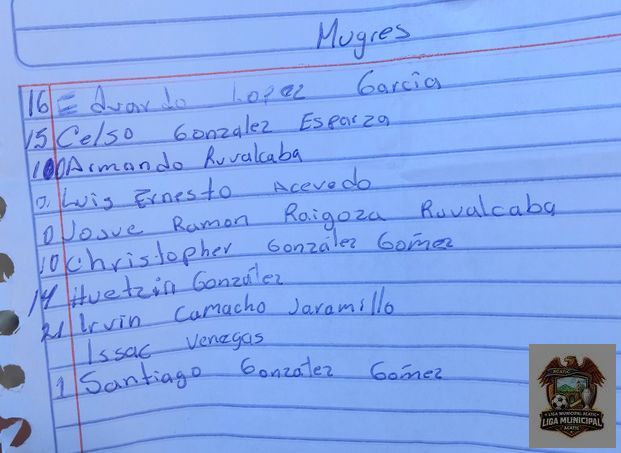 Mugres
16 Eduardo Lopez García
15 Celso Gonzalez Esparza
Armando Ruvalcaba
Luis Ernesto Acevedo
Josue Ramon Raigoza Ruvalcaba
10 Christopher González Gómez
14 Huetzin González
21 Irvin Camacho Jaramillo
Issac Venegas
1 Santiago González Gómez
ACATIC
LIGA MUNICIPAL ACATIC
LIGA MUNICIPAL
ACATIC